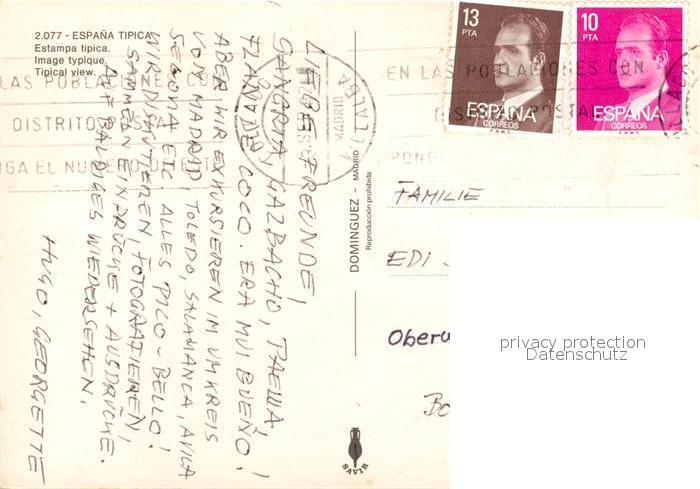 2.077 - ESPAÑA TIPICA
Estampa tipica.
Image typique.
Tipical view.
LIEBE FREUNDE,
SANGRIA, GAZBACHO, PAELLA,
FLAN DE COCO. ERA MUI BUEÑO.
ABER WIR EXKURSIEREN IM UMKREIS
VON MADRID, TOLEDO, SALAMANCA, AVILA
SEGOVIA ETC. ALLES PICO-BELLO!
WIR DISKUTIEREN, FOTOGRAFIEREN,
SAMMELN EINDRÜCKE + AUSDRÜCKE.
AUF BALDIGES WIEDERSEHEN,
HUGO, GEORGETTE
DOMINGUEZ - MADRID
Reproducción prohibida
SAVIR
13
PTA
ESPAÑA
CORREOS
10
PTA
ESPAÑA
CORREOS
EN LAS POBLACIONES CON
DISTRITOS POSTA
PONGA
LAS POBLACIONES CO
DISTRITOS POSTA
NGA EL NUMERO
MADRID
VILLALBA
FAMILIE
EDI
Oberw
Bo
privacy protection
Datenschutz